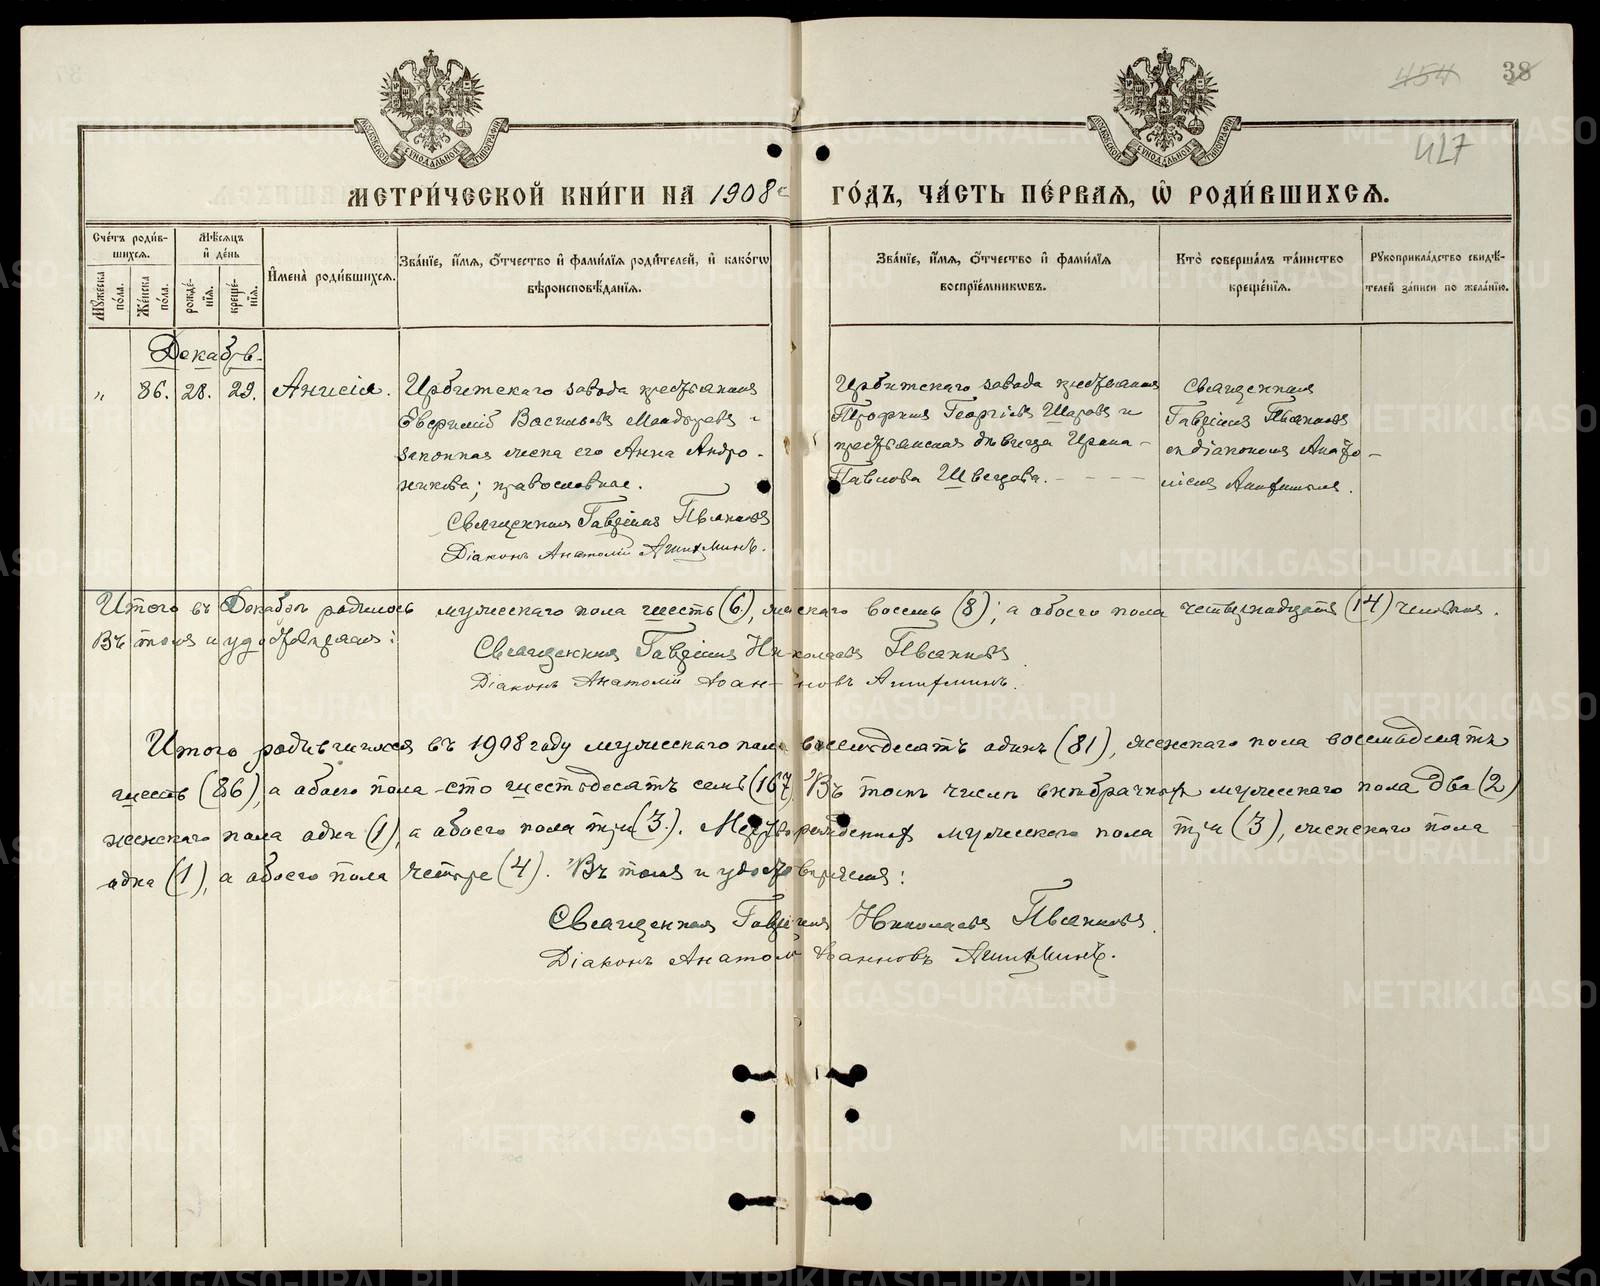 454 38
417
МОСКОВСКОЙ СѴНОДАЛЬНОЙ ТИПОГРАФІИ
МОСКОВСКОЙ СѴНОДАЛЬНОЙ ТИПОГРАФІИ
МЕТРИ́ЧЕСКОЙ КНИ́ГИ НА 1908 ГО́ДЪ, ЧА́СТЬ ПЕ́РВАЯ, Ѡ РОДИ́ВШИХСѦ.
Сче́тъ роди́в-
шихсѧ.
Мѣ́сѧцъ
и҆ де́нь
Мꙋ́жеска
по́ла.
Же́нска
по́ла.
рожде́-
нїѧ.
креще́-
нїѧ.
И҆мена̀ роди́вшихсѧ.
Зва́нїе, и҆́мѧ, ѻ҆́тчество и҆ фами́лїѧ роди́телей, и҆ како́гѡ
вѣроисповѣ́данїѧ.
Зва́нїе, и҆́мѧ, ѻ҆́тчество и҆ фами́лїѧ
воспрїе́мникѡвъ.
Кто̀ соверша́лъ та́инство
креще́нїѧ.
Рꙋкоприкла́дство свидѣ́-
телей за́писи по жела́нїю.
Декабрь.
" 86. 28. 29. Анисія.
Ирбитскаго завода крестьянинъ
Евфимій Васильевъ и
законная жена его Анна Андро-
никова; православные.
Священникъ Гавріилъ Пьянковъ
Діаконъ Анатолій
Ирбитскаго завода крестьянинъ
Трофимъ Георгіевъ Шаровъ и
крестьянская дѣвица Ирина
Павлова Швецова.
Священникъ
Гавріилъ Пьянковъ
съ діакономъ Анато-
ліемъ
Итого въ Декабрѣ родилось мужескаго пола шесть (6), женскаго восемь (8); а обоего пола четырнадцать (14) человѣкъ.
Въ томъ и удостовѣряемъ:
Священникъ Гавріилъ Николаевъ Пьянковъ
Діаконъ Анатолій Іоанновъ
Итого родившихся въ 1908 году мужескаго пола восемьдесятъ одинъ (81), женскаго пола восемьдесятъ
шесть (86), а обоего пола -сто шестьдесятъ семь (167). Въ томъ числѣ внѣбрачныхъ мужескаго пола два (2)
женскаго пола одна (1), а обоего пола три (3.). Мертворожденныхъ мужескаго пола три (3), женскаго пола
одна (1), а обоего пола четыре (4). Въ томъ и удостовѣряемъ:
Священникъ Гавріилъ Николаевъ Пьянковъ.
Діаконъ Анатолій Іоанновъ
METRIKI.GASO-URAL.RU